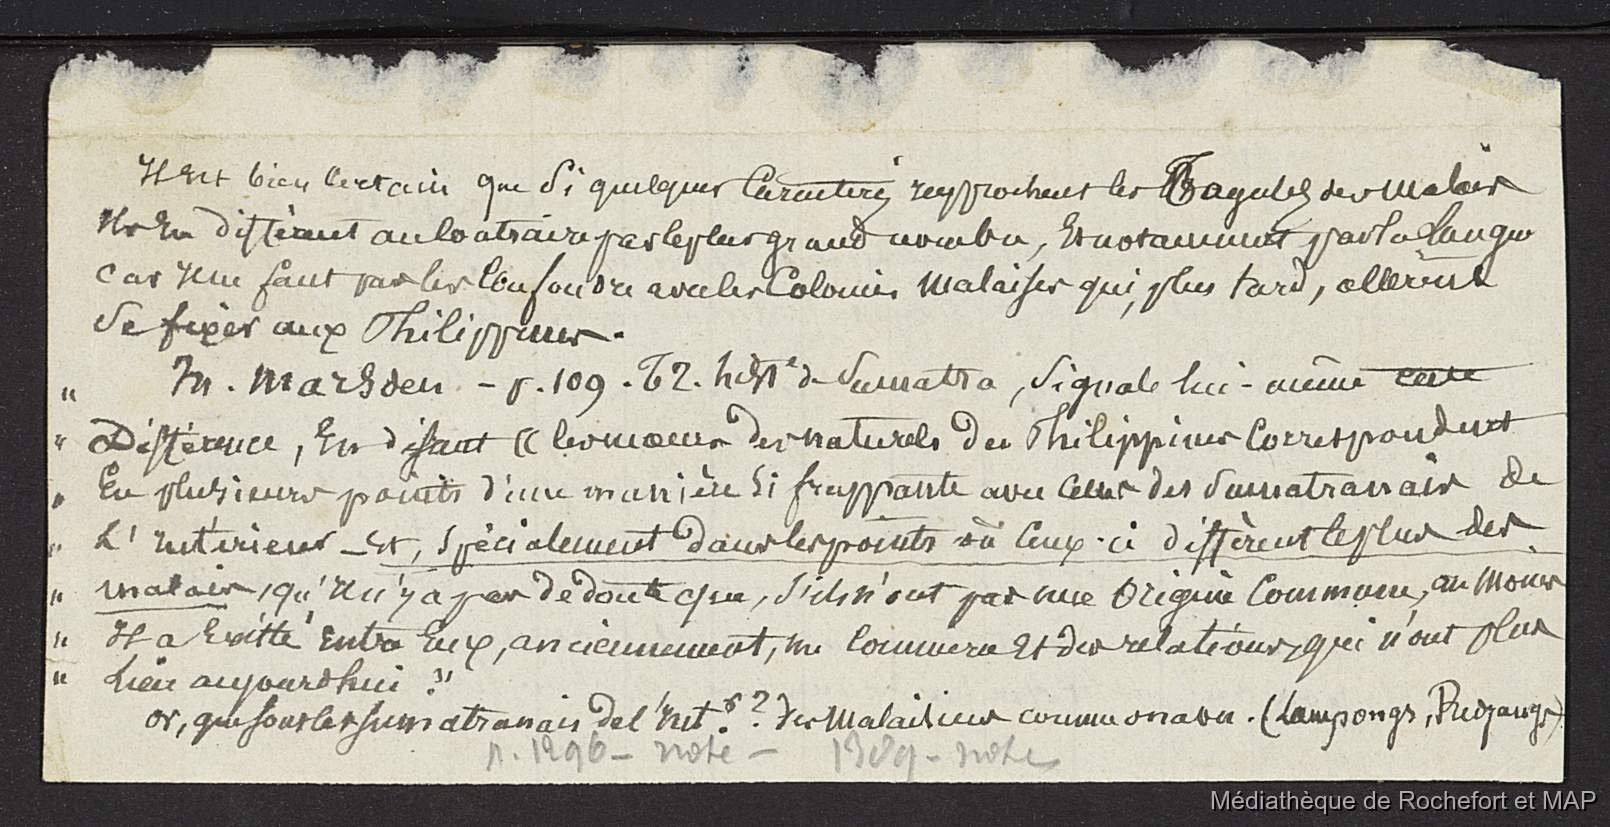 Il est bien certain que si quelques caractères rapprochent les Tagales des Malais
ils en diffèrent au contraire par le plus grand nombre, et notamment par la langue
car il ne faut pas les confondre avec les colonies Malaises qui, plus tard, allèrent
se fixer aux Philippines.
" M. Marsden - p. 109. T2. hist.e de Sumatra, signale lui-même cette
" Différence, en disant « les mœurs des naturels des Philippines correspondent
" en plusieurs points d'une manière si frappante avec celles des Sumatranais de
" L'intérieur - et, spécialement dans les points où ceux-ci diffèrent le plus des
" malais, qu'il n'y a pas de doute que, s'ils n'ont pas une origine commune, au moins
" il a existé entre eux, anciennement, un commerce et des relations, qui n'ont plus
" lieu aujourd'hui ?"
or, que sont les sumatranais de l'int.r ? des Malaisiens comme on a vu. (Lampongs, Redjangs)
p. 1296 - note - 1389 - note
Médiathèque de Rochefort et MAP